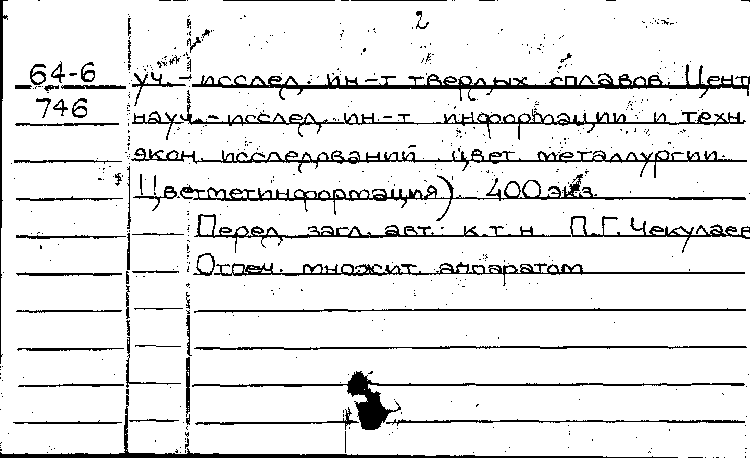 2
64-6 уч.-исслед. ин-т твердых сплавов. Цент
746 науч.-исслед. ин-т информации и техн.
экон. исследований цвет. металлургии.
Цветметинформация). 400 экз.
Перед загл. авт.: к.т.н. П.Г. Чекулаев
Отпеч. множит. аппаратом